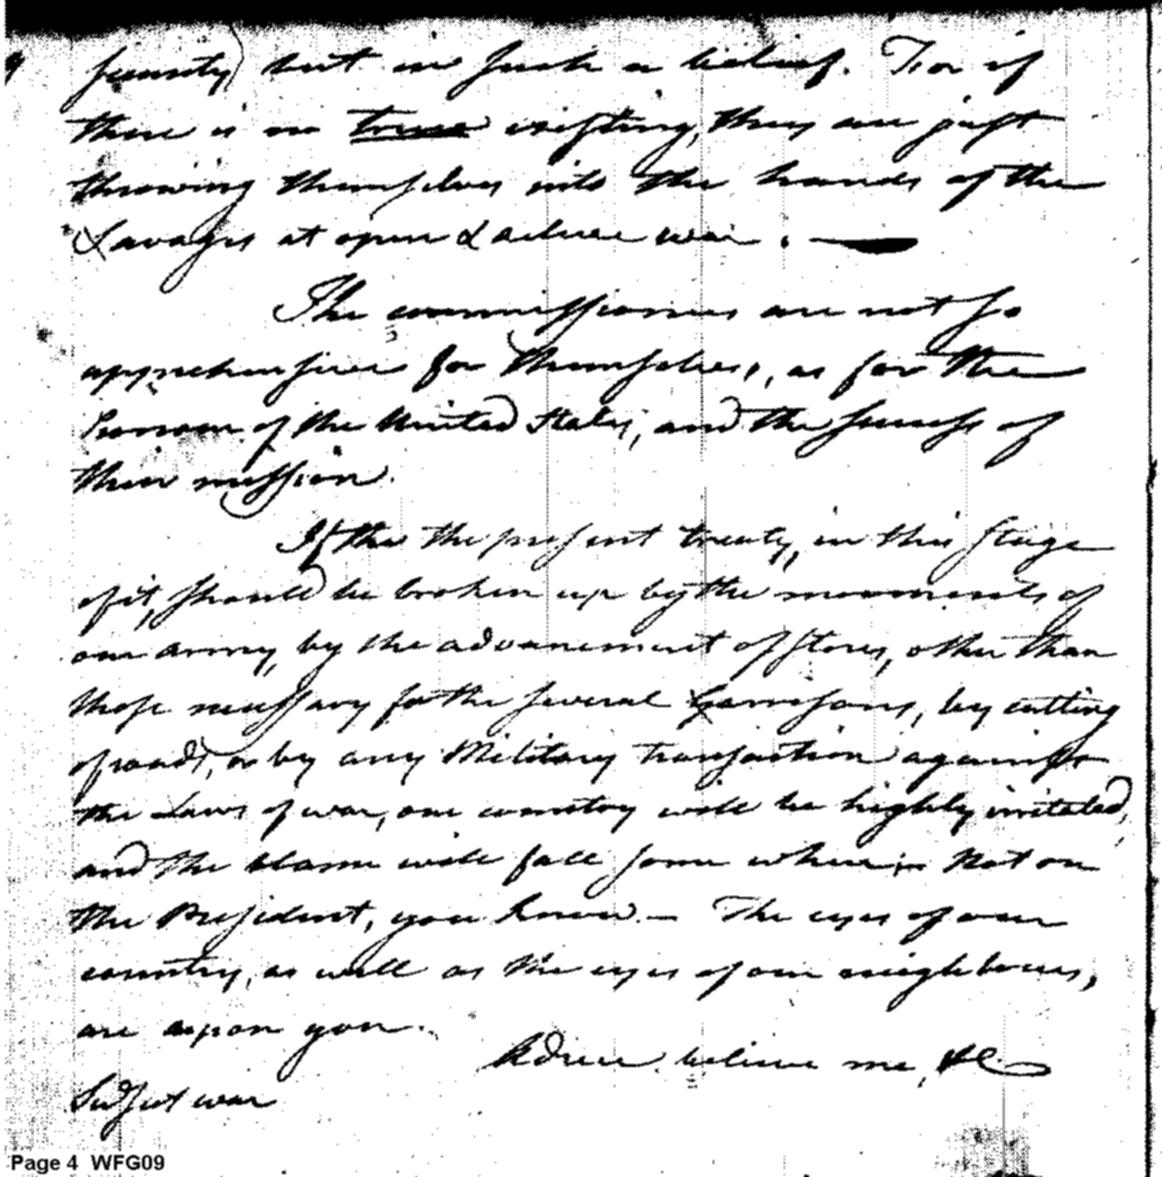 security) but in such a belief. For if
there is no truce existing, they are just
throwing themselves into the hands of the
Savages at open & actual war.
The commissioners are not so
apprehensive for themselves, as for the
honour of the United States, and the success of
their mission.
If the the present treaty, in this stage
of it, should be broken up by the movements of
our army, by the advancement of stores, other than
those necessary for the several Garrisons, by cutting
of roads, or by any Military transaction against
the Laws of war, our country will be highly irritated,
and the blame will fall some where; Not on
the President, you know. – The eyes of our
country, as well as the eyes of our neighbours,
are upon you.
Adieu believe me, &c
Sec'y of war
Page 4 WFG09